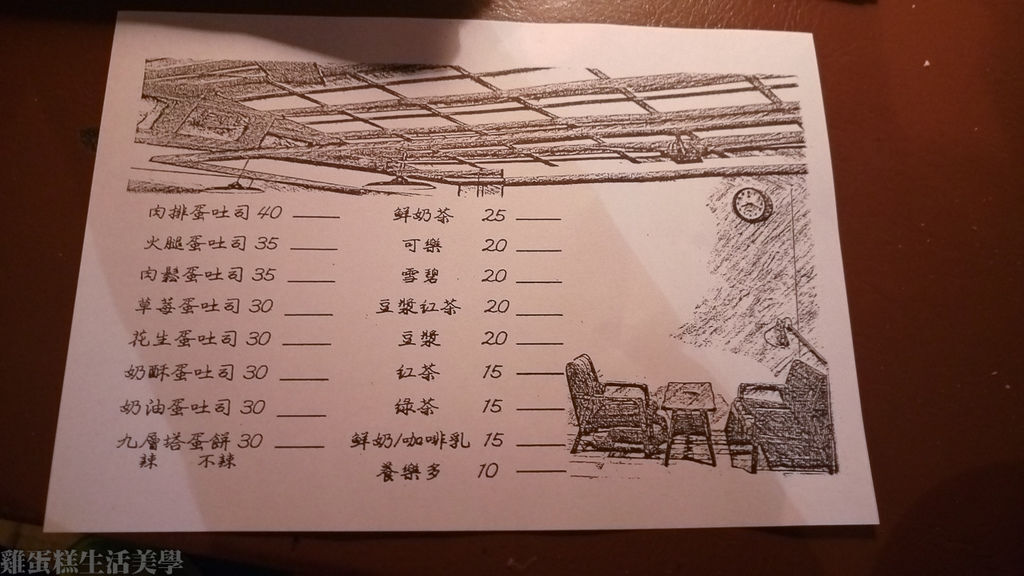 肉排蛋吐司 40
火腿蛋吐司 35
肉鬆蛋吐司 35
草莓蛋吐司 30
花生蛋吐司 30
奶酥蛋吐司 30
奶油蛋吐司 30
九層塔蛋餅 30
辣 不辣
鮮奶茶 25
可樂 20
雪碧 20
豆漿紅茶 20
豆漿 20
紅茶 15
綠茶 15
鮮奶/咖啡乳 15
養樂多 10
雞蛋糕生活美學